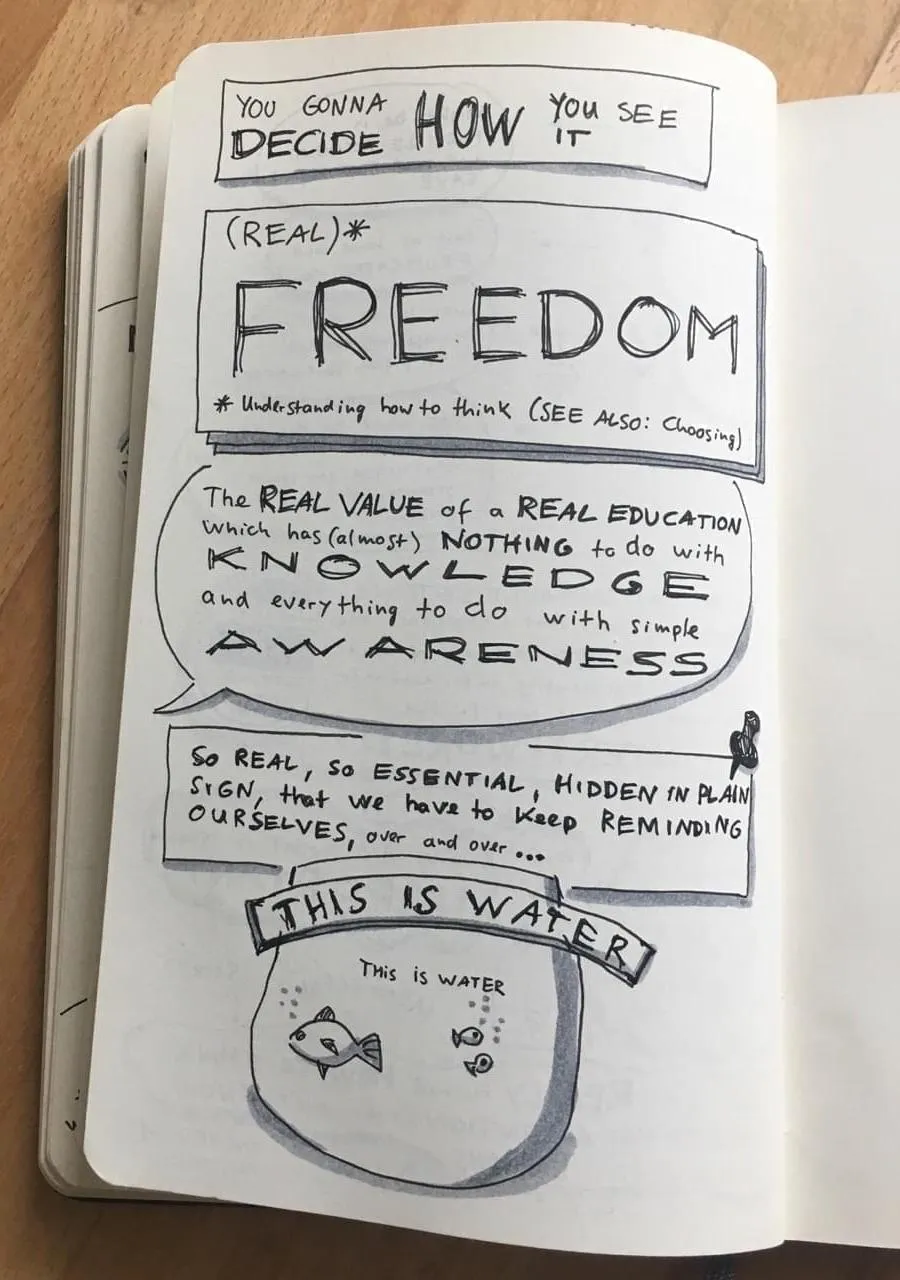 YOU GONNA
DECIDE HOW YOU SEE
IT
(REAL)*
FREEDOM
* Understanding how to think (SEE ALSO: Choosing)
The REAL VALUE of a REAL EDUCATION
which has (almost) NOTHING to do with
KNOWLEDGE
and everything to do with simple
AWARENESS
So REAL, so ESSENTIAL, HIDDEN IN PLAIN
SIGN, that we have to keep REMINDING
OURSELVES, over and over ...
THIS IS WATER
THis is WATER